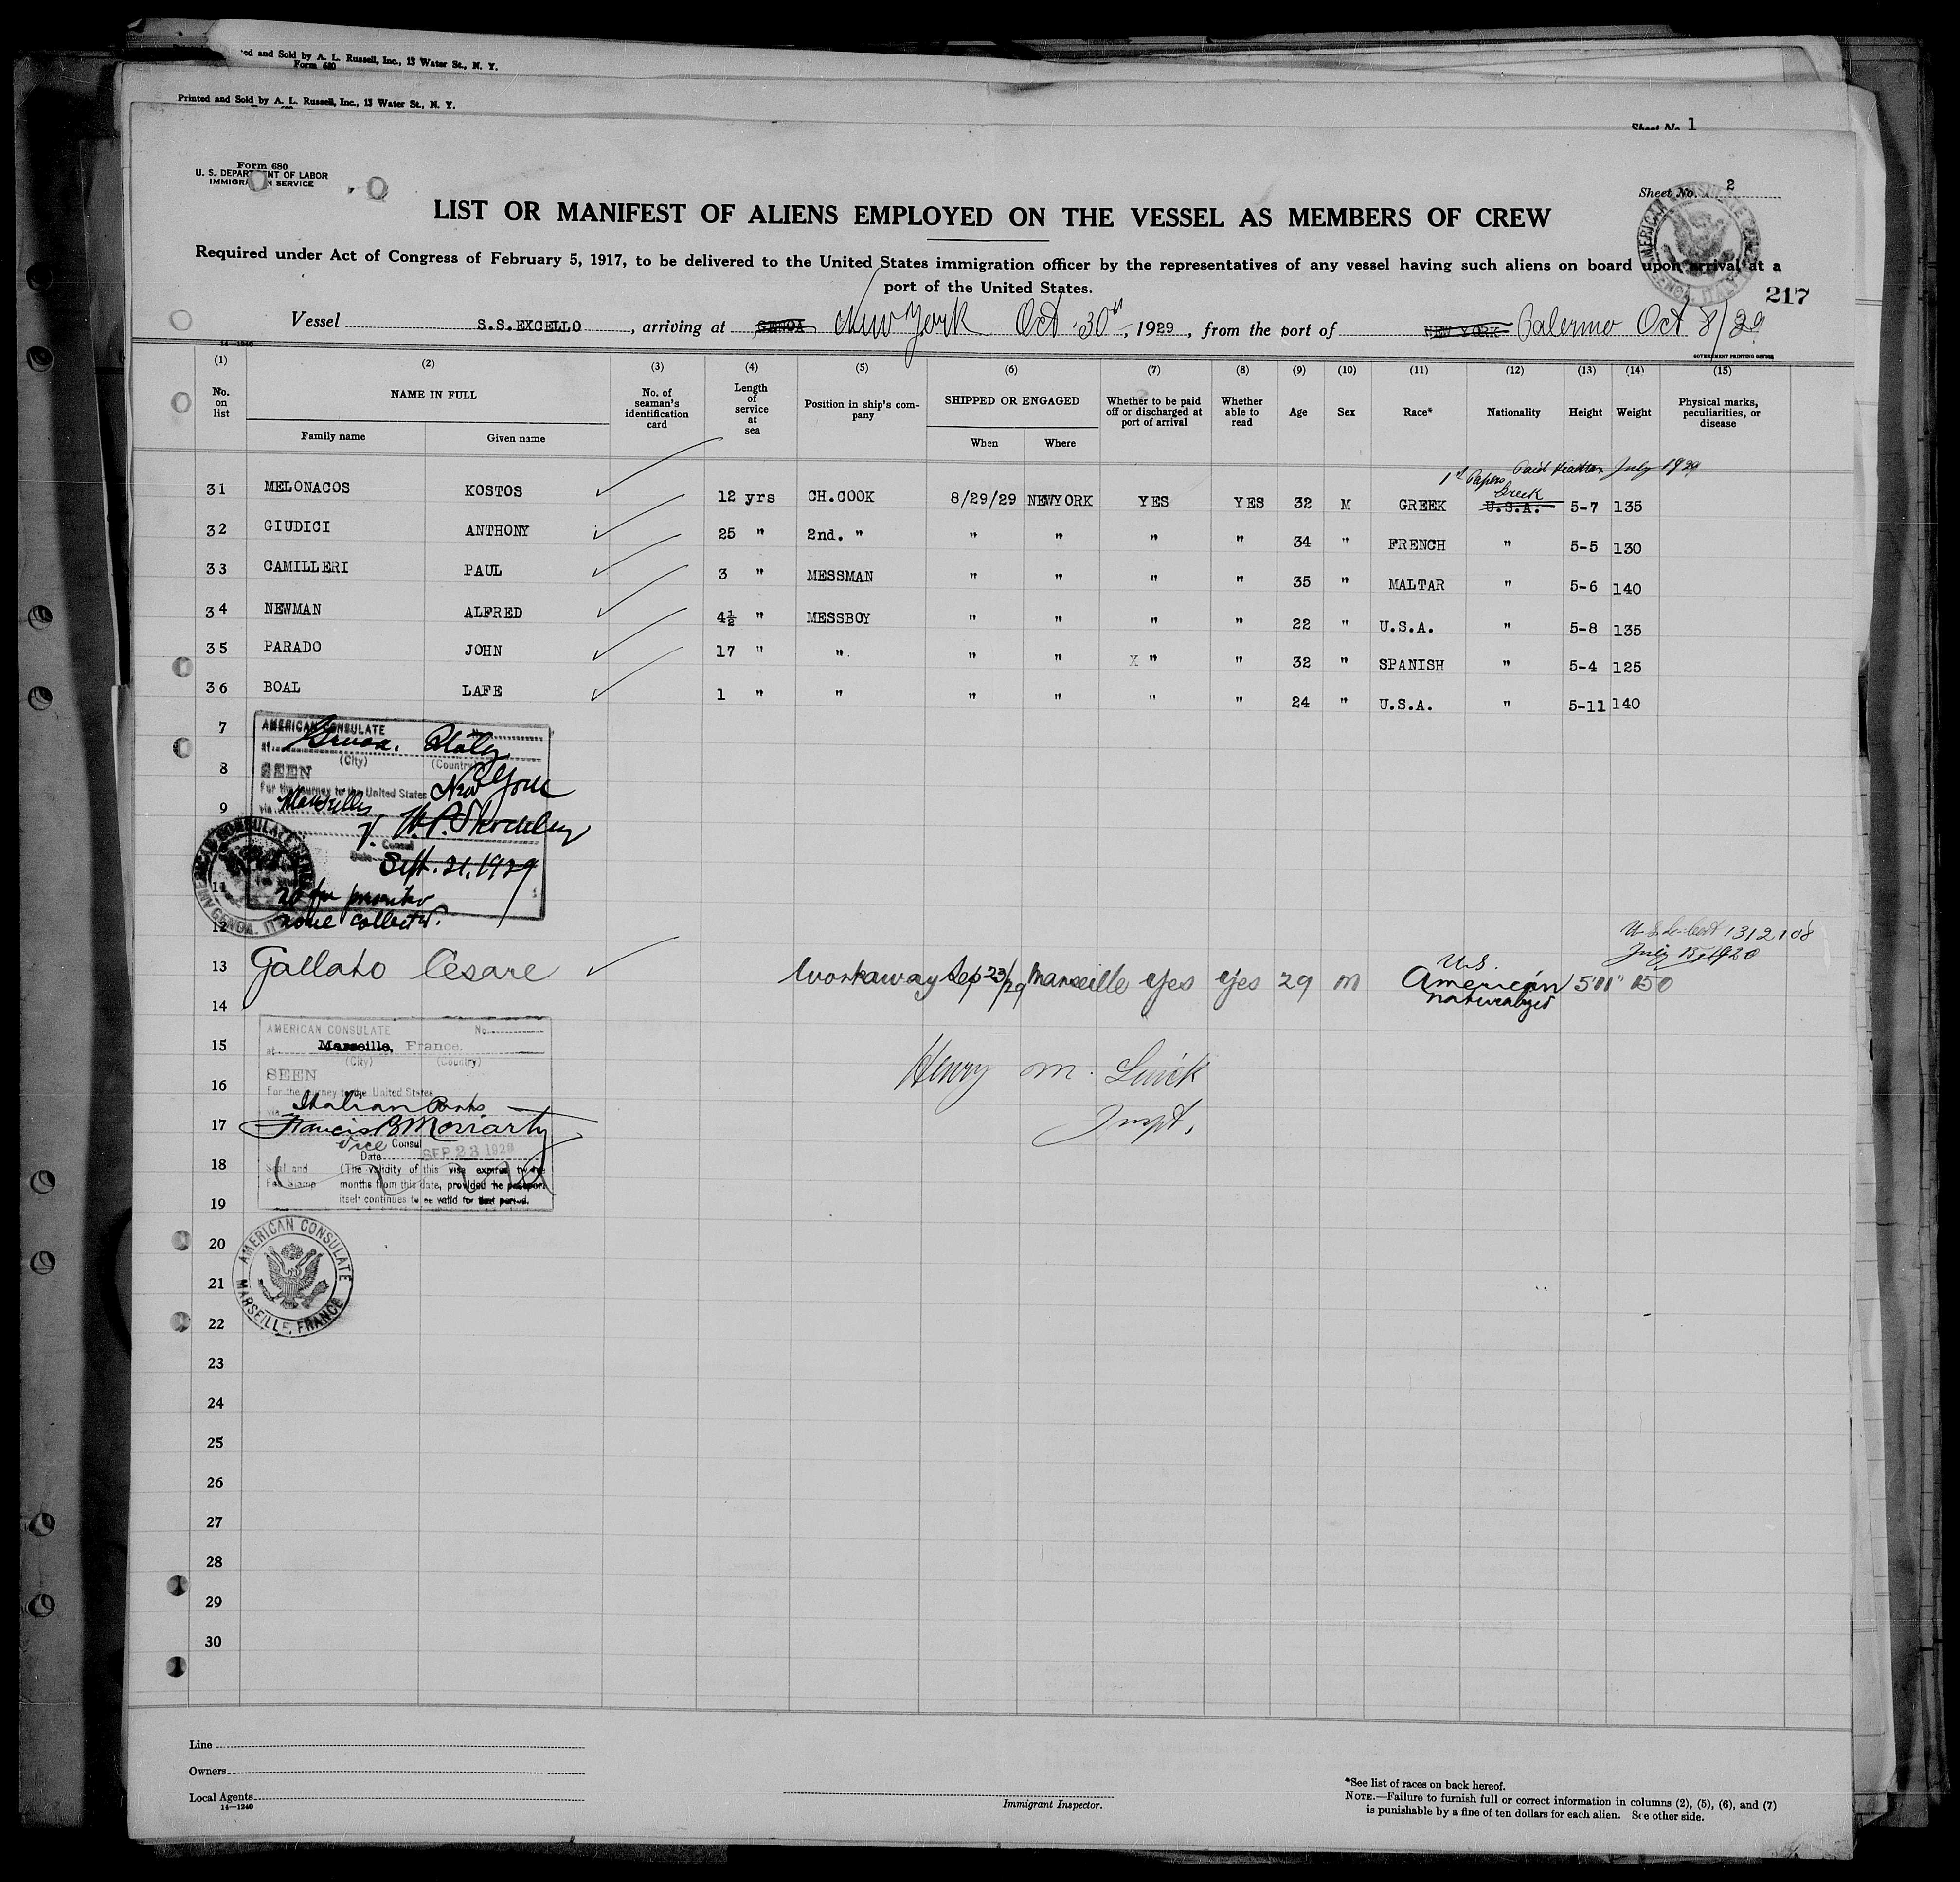 ed and Sold by A. L. Russell, Inc., 13 Water St., N. Y.
Form 680
Printed and Sold by A. L. Russell, Inc., 13 Water St., N. Y.
Sheet No. 1
Form 680
U. S. DEPARTMENT OF LABOR
IMMIGRATION SERVICE
Sheet No. 2
LIST OR MANIFEST OF ALIENS EMPLOYED ON THE VESSEL AS MEMBERS OF CREW
AMERICAN CONSULATE GENERAL GENOA, ITALY
Required under Act of Congress of February 5, 1917, to be delivered to the United States immigration officer by the representatives of any vessel having such aliens on board upon arrival at a
port of the United States.
217
Vessel S.S.EXCELLO, arriving at GENOA New York Oct 30th, 1929, from the port of NEW YORK Palermo Oct 8/29
14—1240
GOVERNMENT PRINTING OFFICE
(1) (2) (3) (4) (5) (6) (7) (8) (9) (10) (11) (12) (13) (14) (15)
No. on list NAME IN FULL No. of seaman's identification card Length of service at sea Position in ship's company SHIPPED OR ENGAGED Whether to be paid off or discharged at port of arrival Whether able to read Age Sex Race* Nationality Height Weight Physical marks, peculiarities, or disease
Family name Given name When Where
1st Papers Paid Headtax July 1929
Greek
31 MELONACOS KOSTOS 12 yrs CH.COOK 8/29/29 NEWYORK YES YES 32 M GREEK U.S.A. 5-7 135
32 GIUDICI ANTHONY 25 " 2nd. " " " " " 34 " FRENCH " 5-5 130
33 CAMILLERI PAUL 3 " MESSMAN " " " " 35 " MALTAR " 5-6 140
34 NEWMAN ALFRED 4½ " MESSBOY " " " " 22 " U.S.A. " 5-8 135
35 PARADO JOHN 17 " " " " X " " 32 " SPANISH " 5-4 125
36 BOAL LAFE 1 " " " " " " 24 " U.S.A. " 5-11 140
7
AMERICAN CONSULATE No.
at Genoa, Italy
(City) (Country)
8
SEEN
For the journey to the United States New York
via Marseilles
9
V. Consul
Date Sept. 21, 1929
AMERICAN CONSULATE GENERAL GENOA, ITALY
11
no fee prescribed
none collected.
12
1312108
July 15, 1920
13 Gallato Cesare Workaway Sep 23/29 Marseille yes yes 29 M U.S. American naturalized 5'11" 150
14
AMERICAN CONSULATE No.
at Marseille, France.
(City) (Country)
15
SEEN
For the journey to the United States
16
via Italian Ports
Henry M.
17
Francis B Moriarty
Inspt.
Vice Consul
Date SEP 23 1929
18
Seal and Fee Stamp
(The validity of this visa expires twelve months from this date, provided the passport itself continues to be valid for that period.
19
20
AMERICAN CONSULATE
MARSEILLE, FRANCE
21
22
23
24
25
26
27
28
29
30
Line
Owners
Local Agents
14—1240
Immigrant Inspector.
*See list of races on back hereof.
NOTE.—Failure to furnish full or correct information in columns (2), (5), (6), and (7)
is punishable by a fine of ten dollars for each alien. See other side.